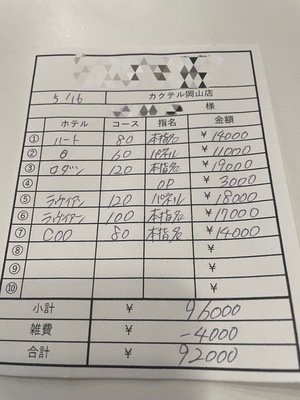 5/16 カクテル岡山店
様
ホテル コース 指名 金額
① ハート 80 本指名 ¥14000
② θ 60 パネル ¥11000
③ ログン 120 本指名 ¥19000
④ OP ¥3000
⑤ ラヴィアン 120 パネル ¥18000
⑥ ラヴィアン 100 本指名 ¥17000
⑦ COO 80 本指名 ¥14000
⑧ ¥
⑨ ¥
⑩ ¥
小計 ¥ 96000
雑費 ¥ -4000
合計 ¥ 92000